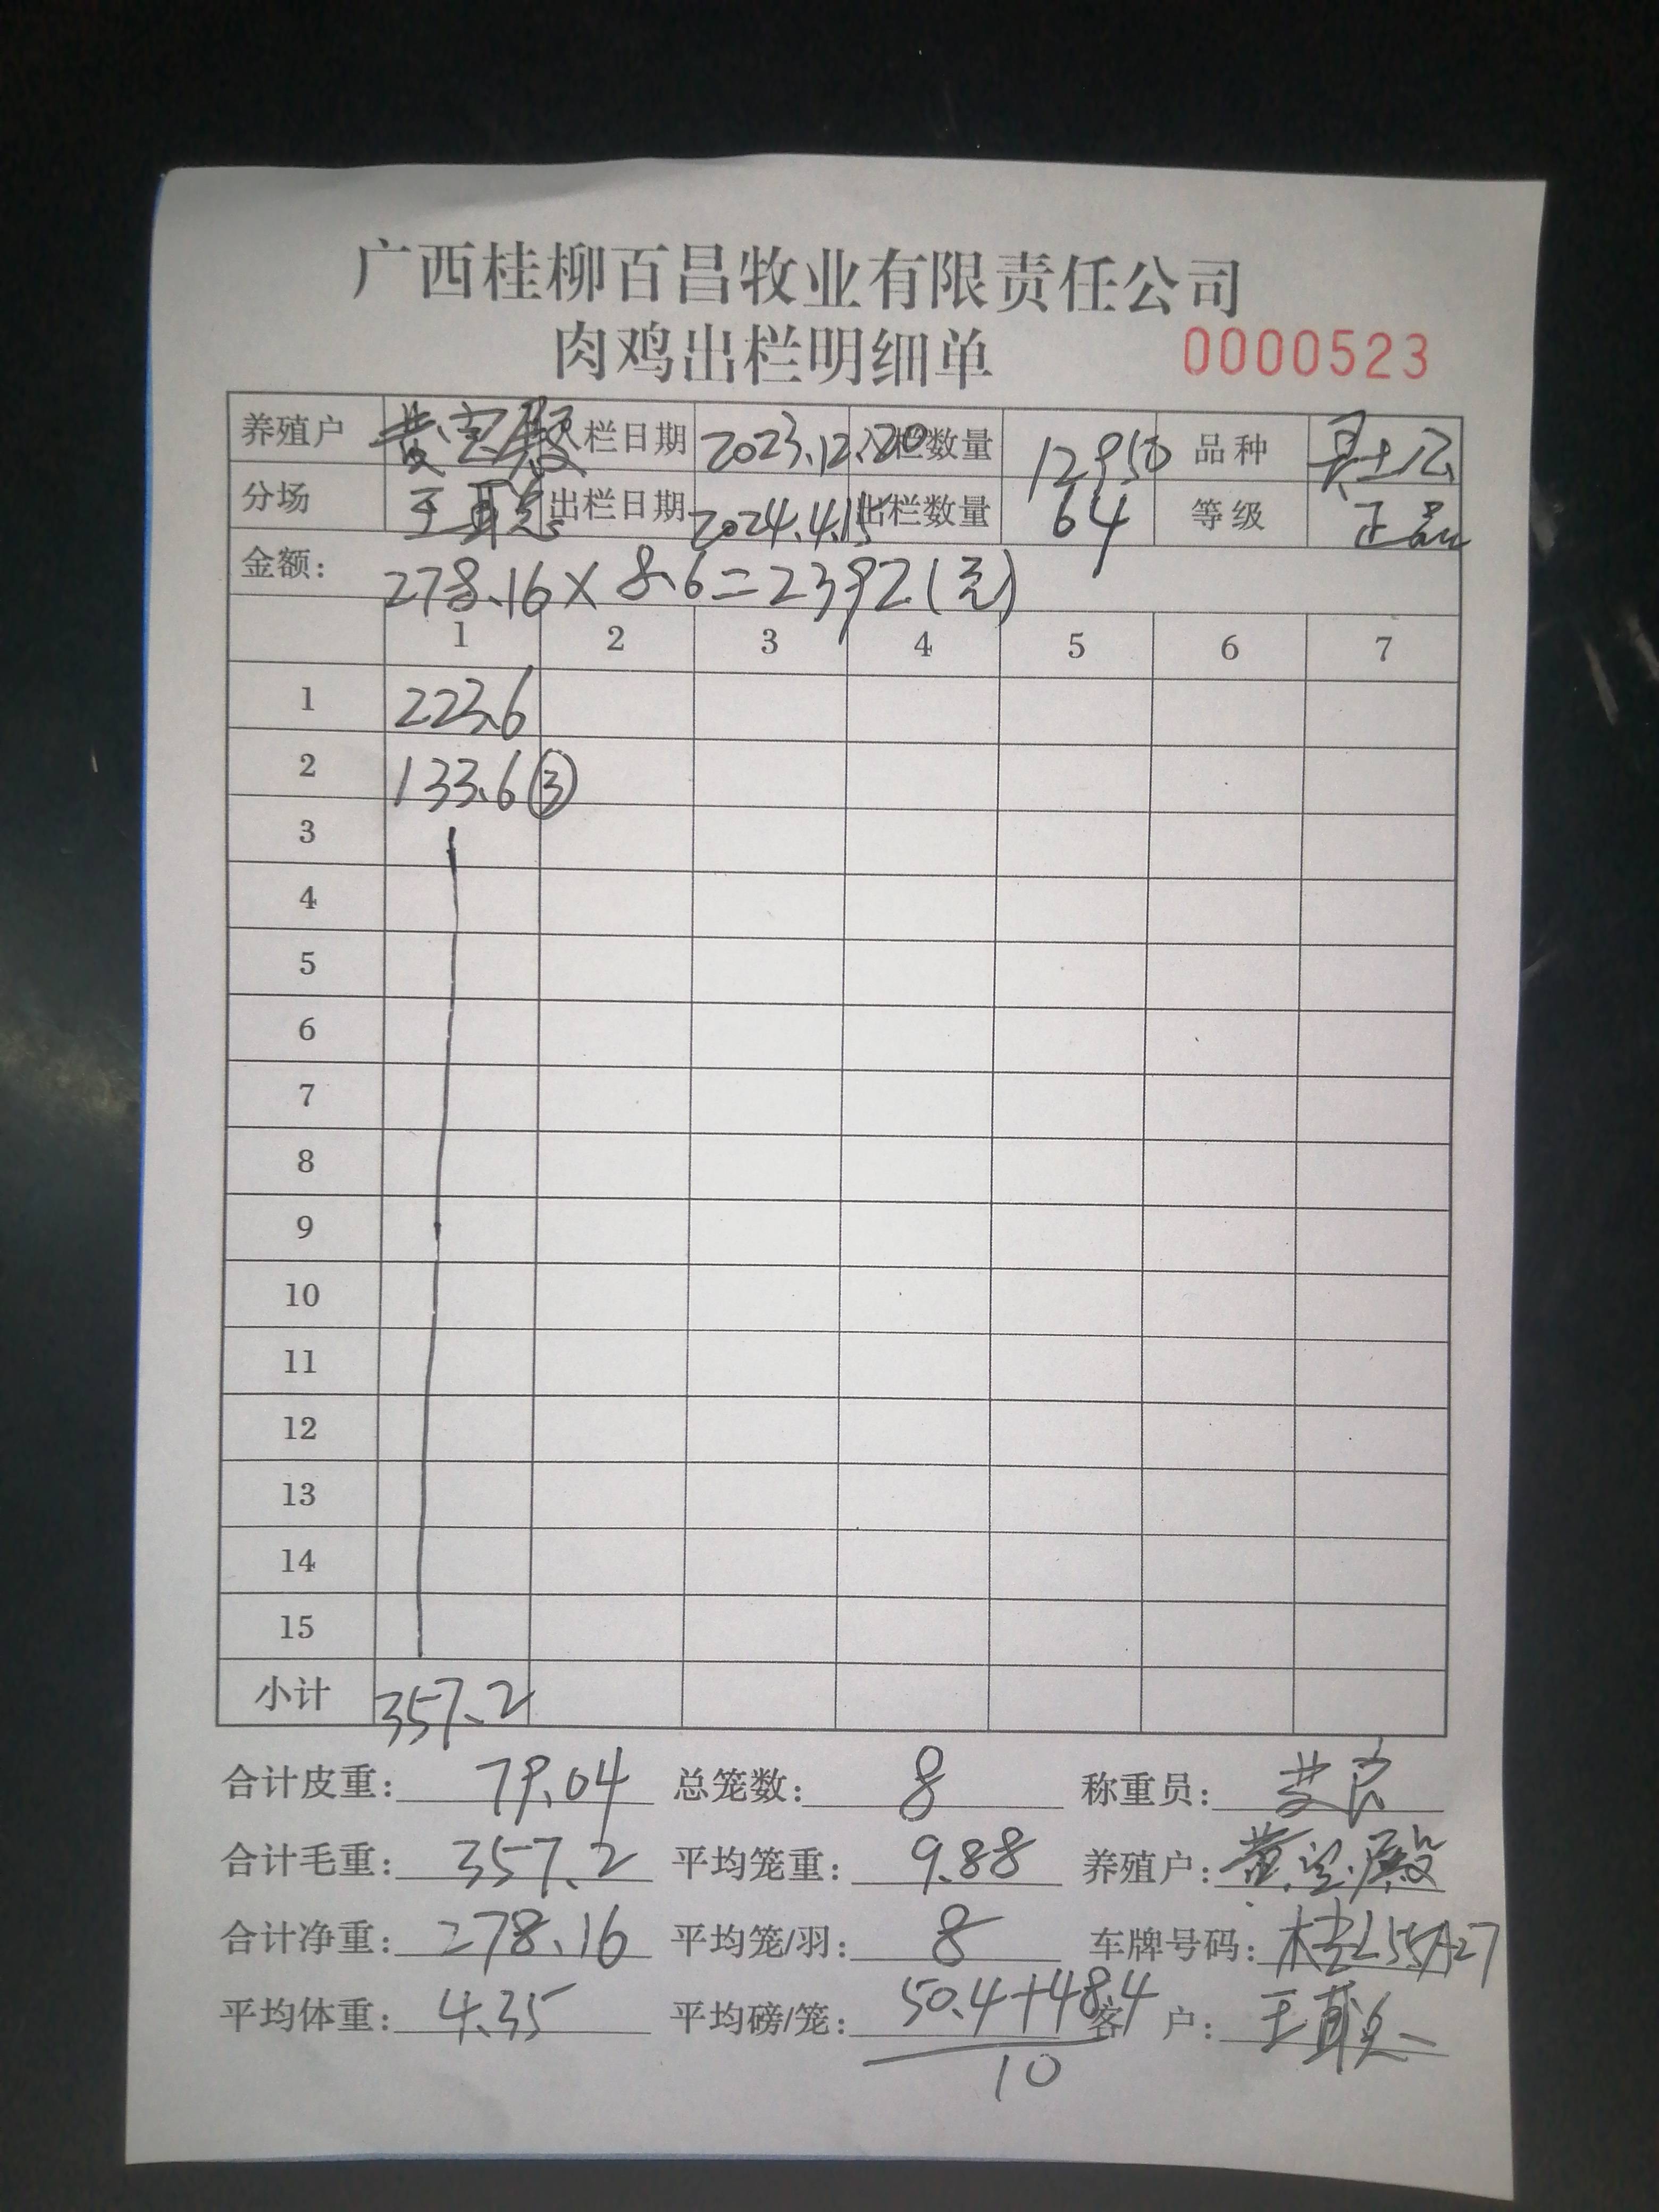 广西桂柳百昌牧业有限责任公司
肉鸡出栏明细单 0000523
养殖户 黄宝殿 入栏日期 2023.12.20 入栏数量 12950 品种
分场 王聪 出栏日期 2024.4.15 出栏数量 64 等级 正品
金额: 278.16×8.6=2392(元)
1 2 3 4 5 6 7
1 223.6
2 133.6 ③
3
4
5
6
7
8
9
10
11
12
13
14
15
小计 357.2
合计皮重: 79.04 总笼数: 8 称重员:
合计毛重: 357.2 平均笼重: 9.88 养殖户: 黄宝殿
合计净重: 278.16 平均笼/羽: 8 车牌号码: 桂L55A27
平均体重: 4.35 平均磅/笼: 50.4+48.4 客 户: 王聪
10